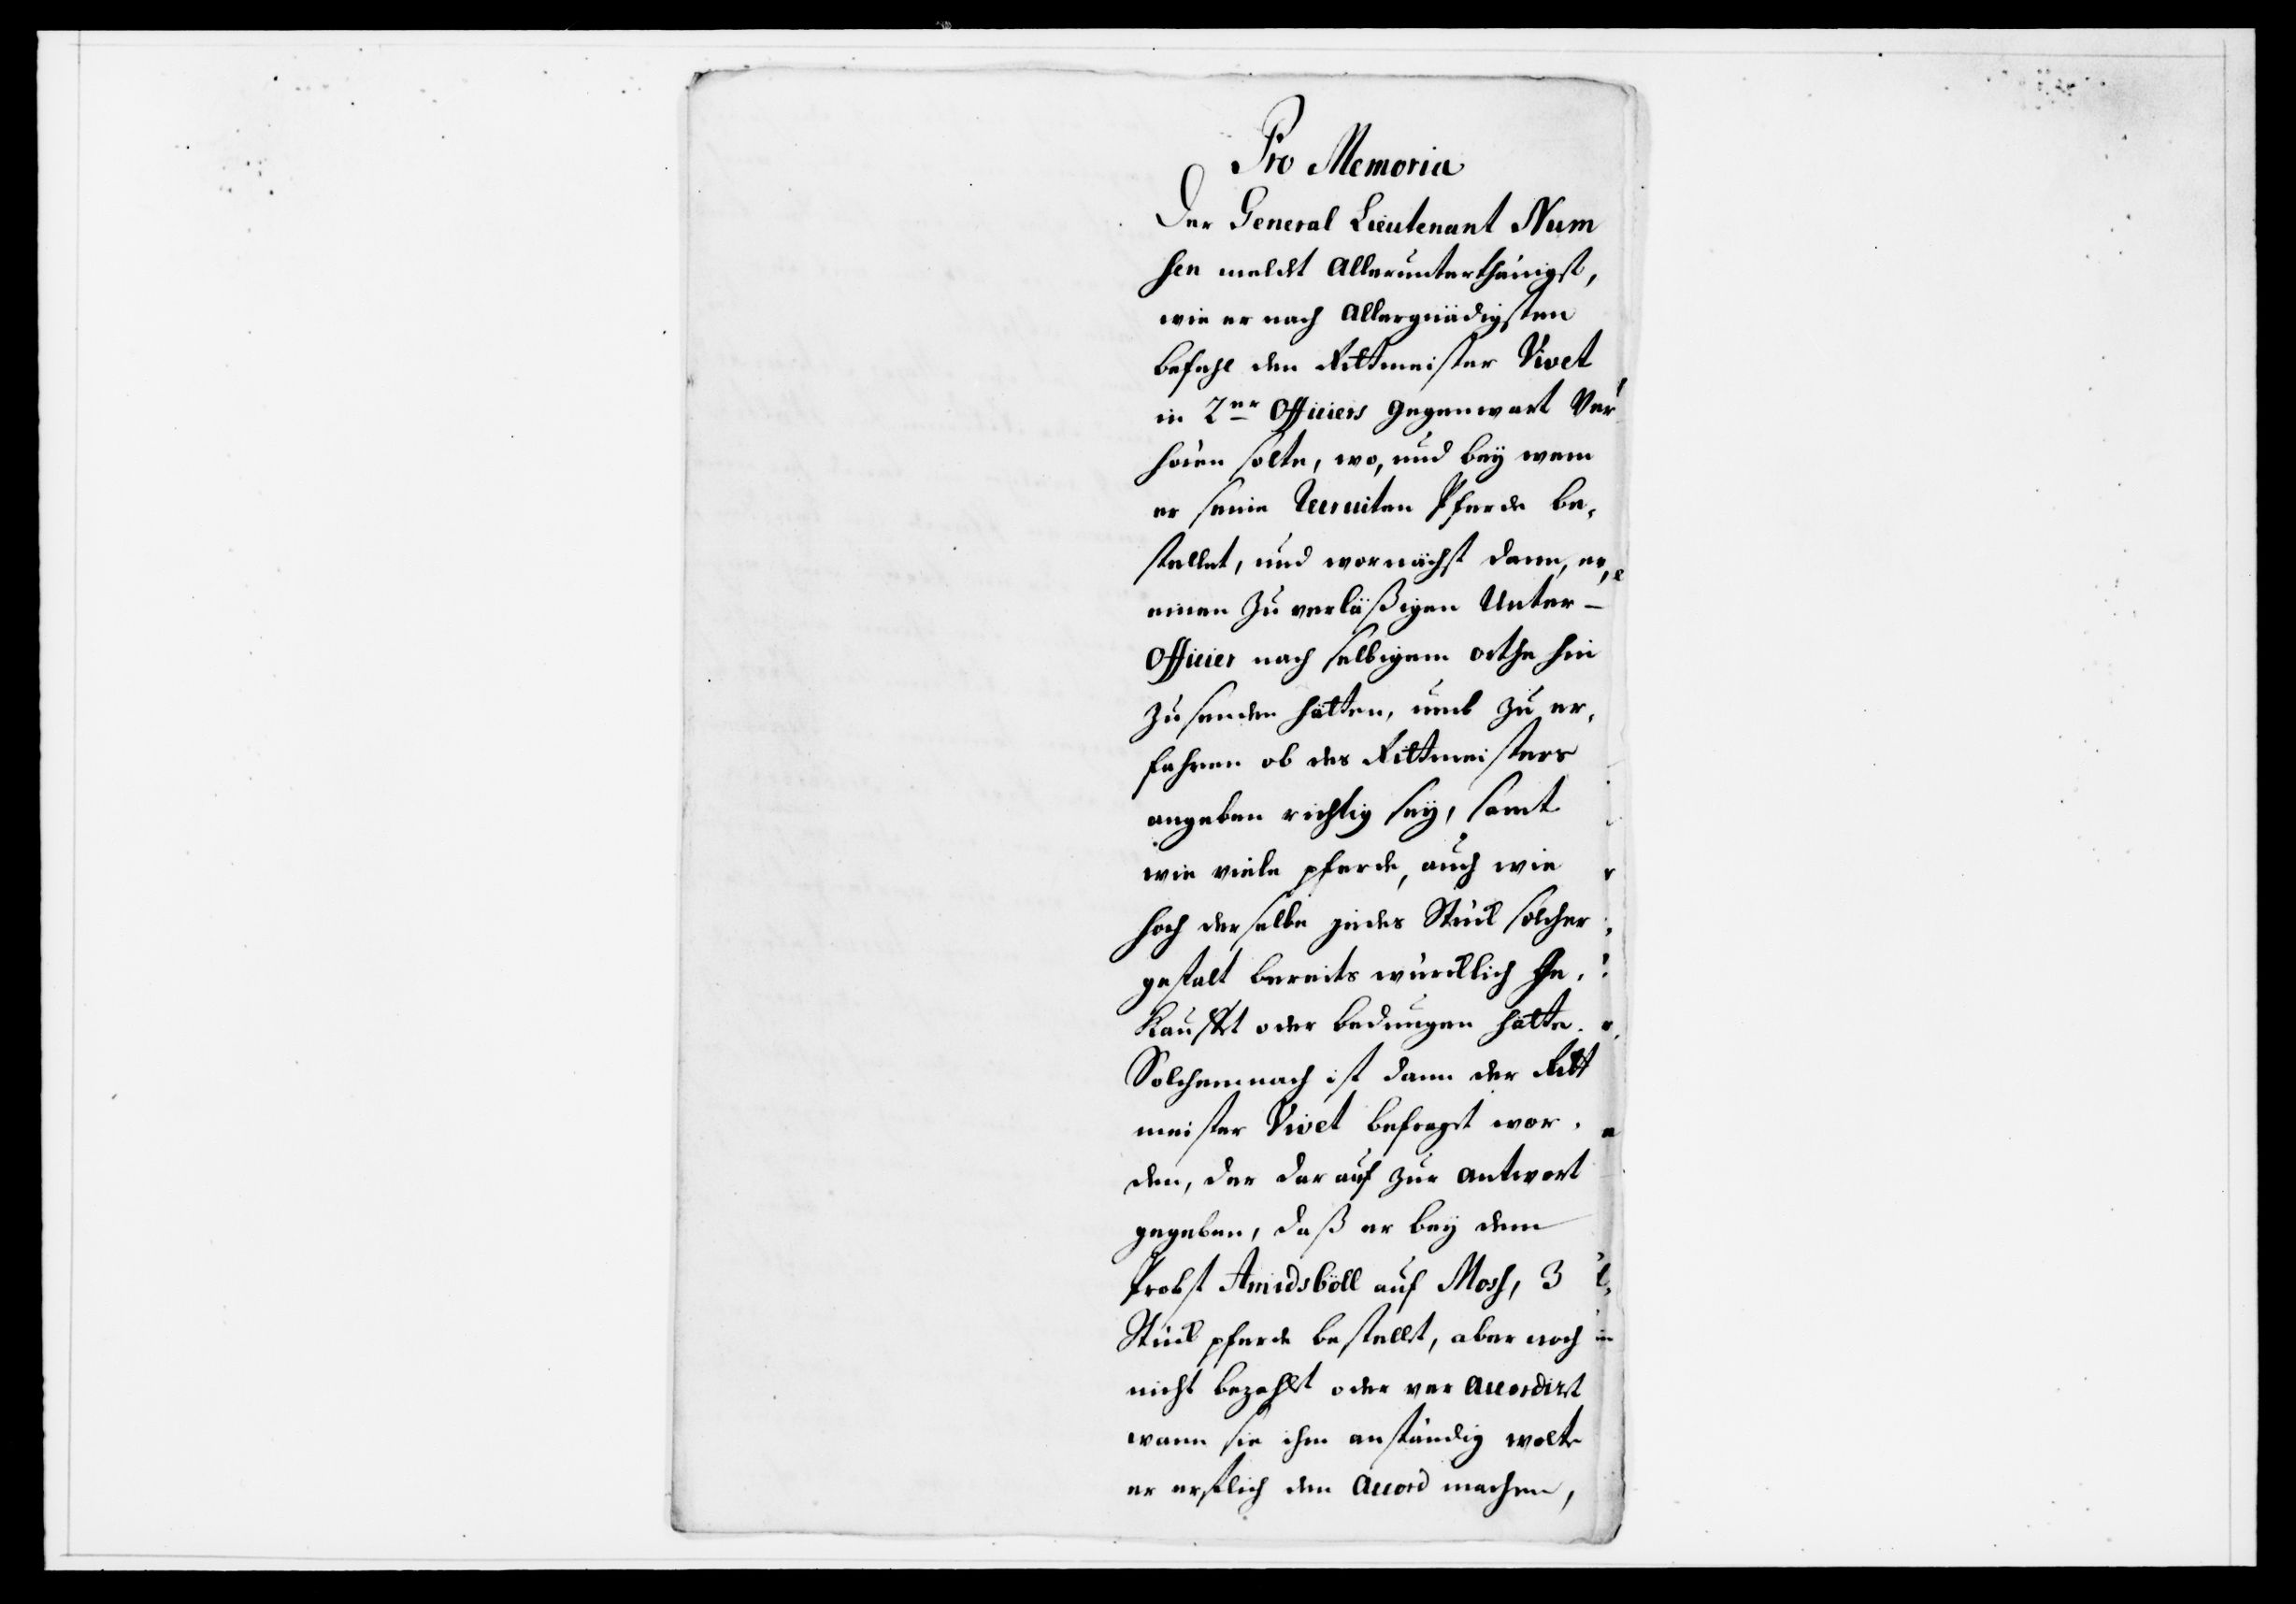 Pro Memoria
Der General Lieutenant Num
sen meldet Allerunterthänigst,
wie er nach Allergnädigsten
befehl den Rittmeister Vivet
in 2er Officiers gegenwart Ver
hören solte, wo, und bey wem
er seine Recruiten Pferde be,
stellet, und wornächst dann, er,
einen zu verläßigen Unter-
Officier nach selbigem orthe hin
zu senden hätten, umb zu er,
fahren ob des Rittmeisters
angeben richtig sey, samt
wie viele pferde, auch wie
hoch derselbe jedes Stück solcher
gestalt bereits würcklich ge,
kaufft oder bedungen hätte.
Solchemnach ist dann der Ritt
meister Vivet befragt wor,
den, der darauf zur antwort
gegeben, daß er bey dem
Probst Amidsböll auf Mosh, 3
Stück pferde bestellt, aber noch
nicht bezahlt oder ver accordirt
wann sie ihm anständig wolte
er erstlich den Accord machen,